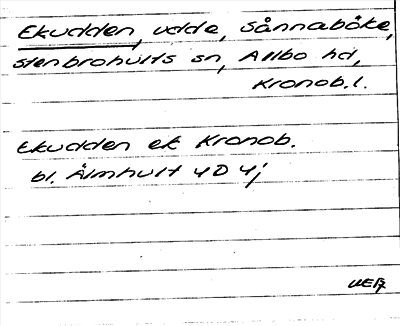 Ekudden, udde, Sånnaböke,
Stenbrohults sn, Allbo hd,
Kronob.l.
Ekudden ek Kronob.
bl. Älmhult 4D 4j